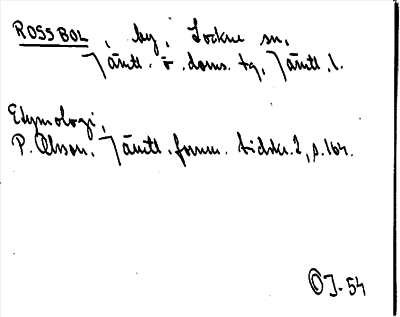 ROSSBOL, by, Lockne sn,
Jämtl. ö. doms. tg, Jämtl. l.
Etymologi,
P. Olsson, Jämtl. fornm. tidskr. 2, s. 164.
OJ-54